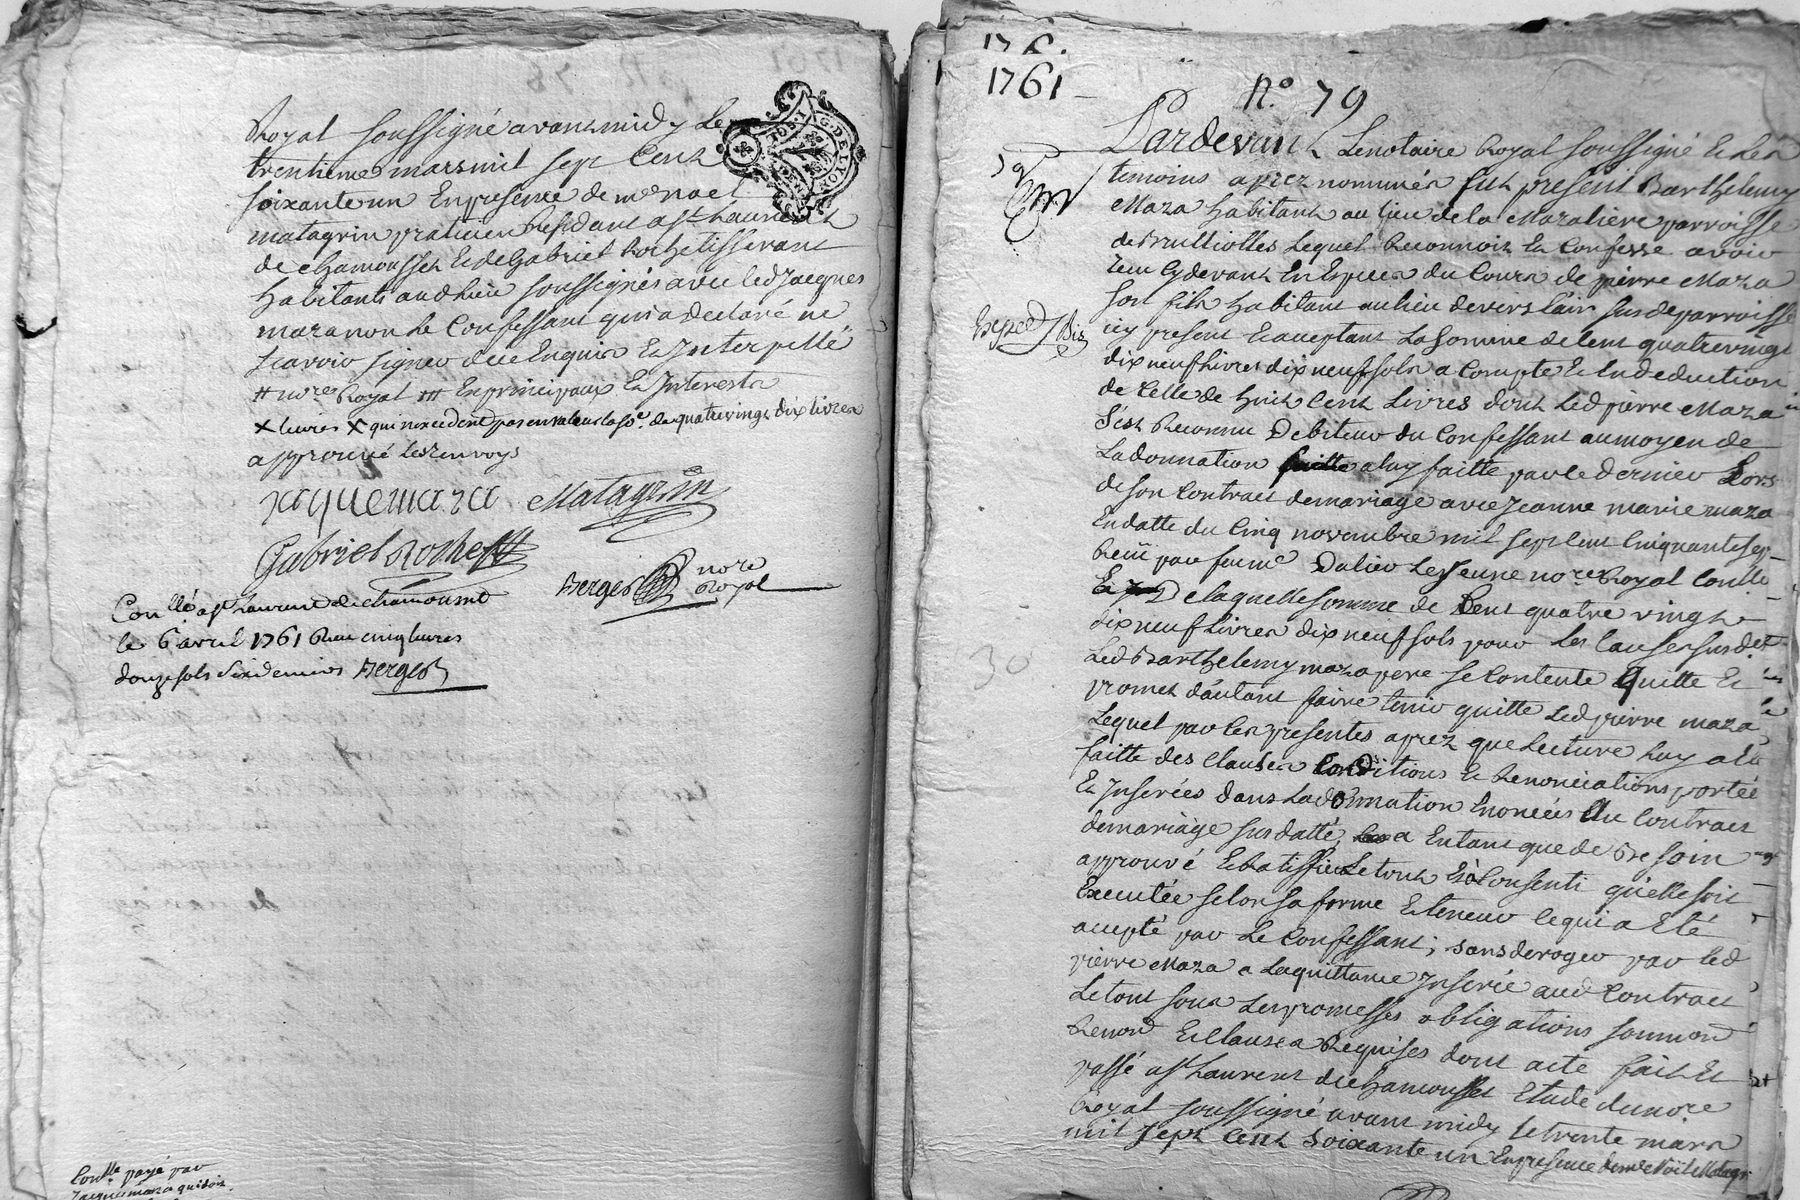 Royal soussigné avant midy Le
trentieme mars mil sept Cent
soixante un En presence de me noel
matagrin praticien Residant a st Laurent
de chamousset Et de Gabriel Rochetisserant
habitants audt lieu soussignés avec led Jacques
maza non le Confessant qui a declaré ne
scavoir signer de ce Enquis Et Interpellé
# nore Royal ## En principaux Et Interests
x livres x qui n'excedent pas en valeur la so.e de quatre vingt dix livres
approuvé les renvoys
jaquemaza Matagrin
Gabriel Roche
Berger nore Royal
Conllé a st Laurent de chamousset
le 6 avril 1761 Reçu cinq livres
douze sols six deniers Berger
Conlle payé par
Jacques maza quidoit
G. DE LYON
1761
1761
No. 79
79
Pardevant Le notaire Royal soussigné Et les
temoins aprez nommés fut present Barthelemy
Maza habitant au lieu de la Mazaliere parroisse
de Brulliolles Lequel Reconnoit Et Confesse avoir
Reçu Cy devant En Especes du Cours de pierre Maza
son fils habitant au lieu de vers lair susde parroisse
icy present Et acceptant La somme de Cent quatre vingt
dix neuf livres dix neuf sols a Compte Et En deduction
de Celle de huit Cent Livres dont led pierre Maza
s'est Reconnu Debiteur du Confessant au moyen de
La donnation a luy faitte par ce dernier Lors
de son Contract de mariage avec Jeanne marie maza
En datte du Cinq novembre mil sept Cent Cinquante sept
Reçu par feu me Dalier Le Jeune nore Royal
De laquelle somme de Cent quatre vingt
dix neuf Livres dix neuf sols pour les Causes susdes
Led Barthelemy maza pere se Contente quitte Et
promet d'autant faire tenir quitte Led pierre maza
Lequel par les presentes aprez que Lecture luy a Eté
faitte des Clauses Conditions Et Renonciations portée
Et Inserées dans La donnation Enoncées au Contract
de mariage sus datté, a En tant que de Besoin
approuvé Et Ratiffié Le tout Et Consenti qu'elle soit
Executée selon sa forme Et teneur Ce qui a Eté
accepté par Le Confessant; sans deroger par led
pierre Maza a La quittance Inserée aud Contract
Le tout sous Les promesses obligations soumon
Renond Et Clauses Requises dont acte fait Et
passé a st Laurent de chamousset Etude du nore
Royal soussigné avant midy Le trente mars
mil Sept Cent soixante un En presence de me Noel Matagrin
Exped Bis
30